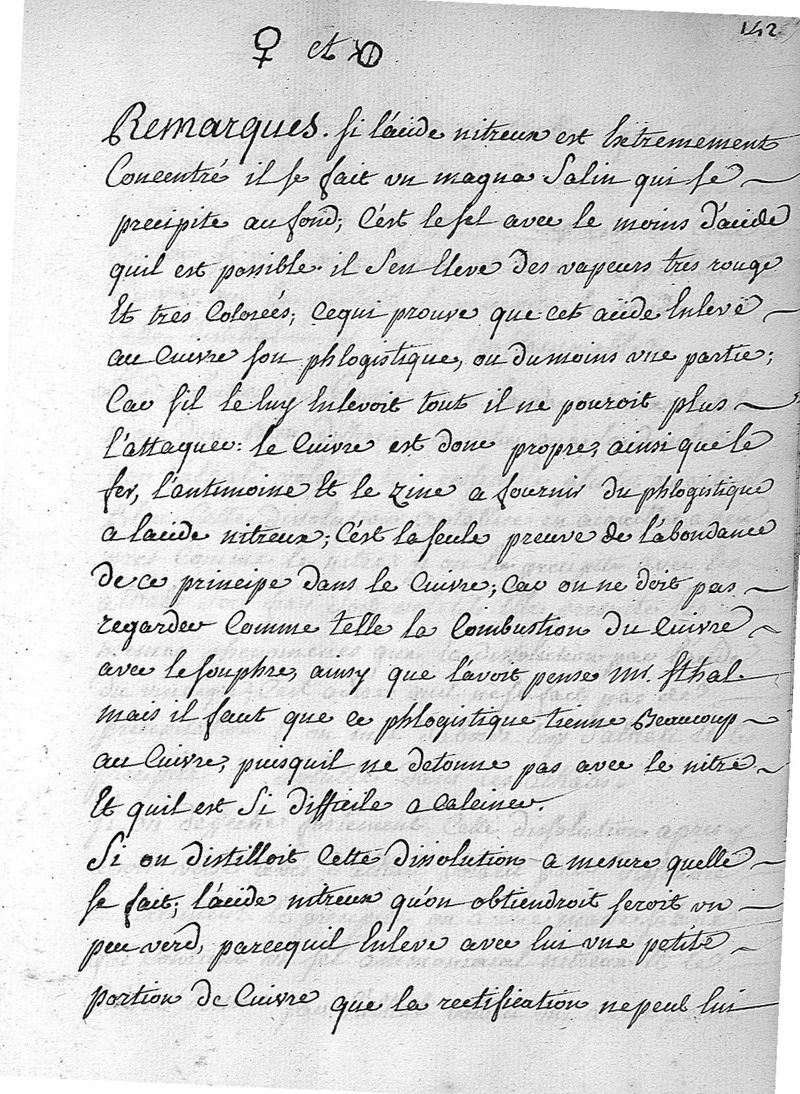 142
♀ et
Remarques. si l'acide nitreux est Extremement
Concentré il se fait un magna Salin qui se
precipite au fond; C'est le sel avec le moins d'acide
quil est possible. il S'en Eleve des vapeurs tres rouge
Et tres Colorées; Cequi prouve que cet acide Enleve
au Cuivre son phlogistique, ou dumoins une partie;
Car s'il le luy Enlevoit tout il ne pouroit plus
l'attaquer: le Cuivre est donc propre, ainsi que le
fer, l'antimoine Et le zinc a fournir du phlogistique
a lacide nitreux; C'est la seule preuve de l'abondance
de ce principe dans le Cuivre; Car on ne doit pas
regarder Comme telle la Combustion du Cuivre
avec le souphre, ainsy que l'avoit pensé Mr. Sthal.
mais il faut que ce phlogistique tienne Beaucoup
au Cuivre, puisquil ne detonne pas avec le nitre
Et quil est Si difficile a calciner.
Si on distilloit Cette dissolution a mesure quelle
se fait; l'acide nitreux qu'on obtiendroit seroit un
peu verd, parcequil Enleve avec lui une petite
portion de Cuivre que la rectification ne peut lui